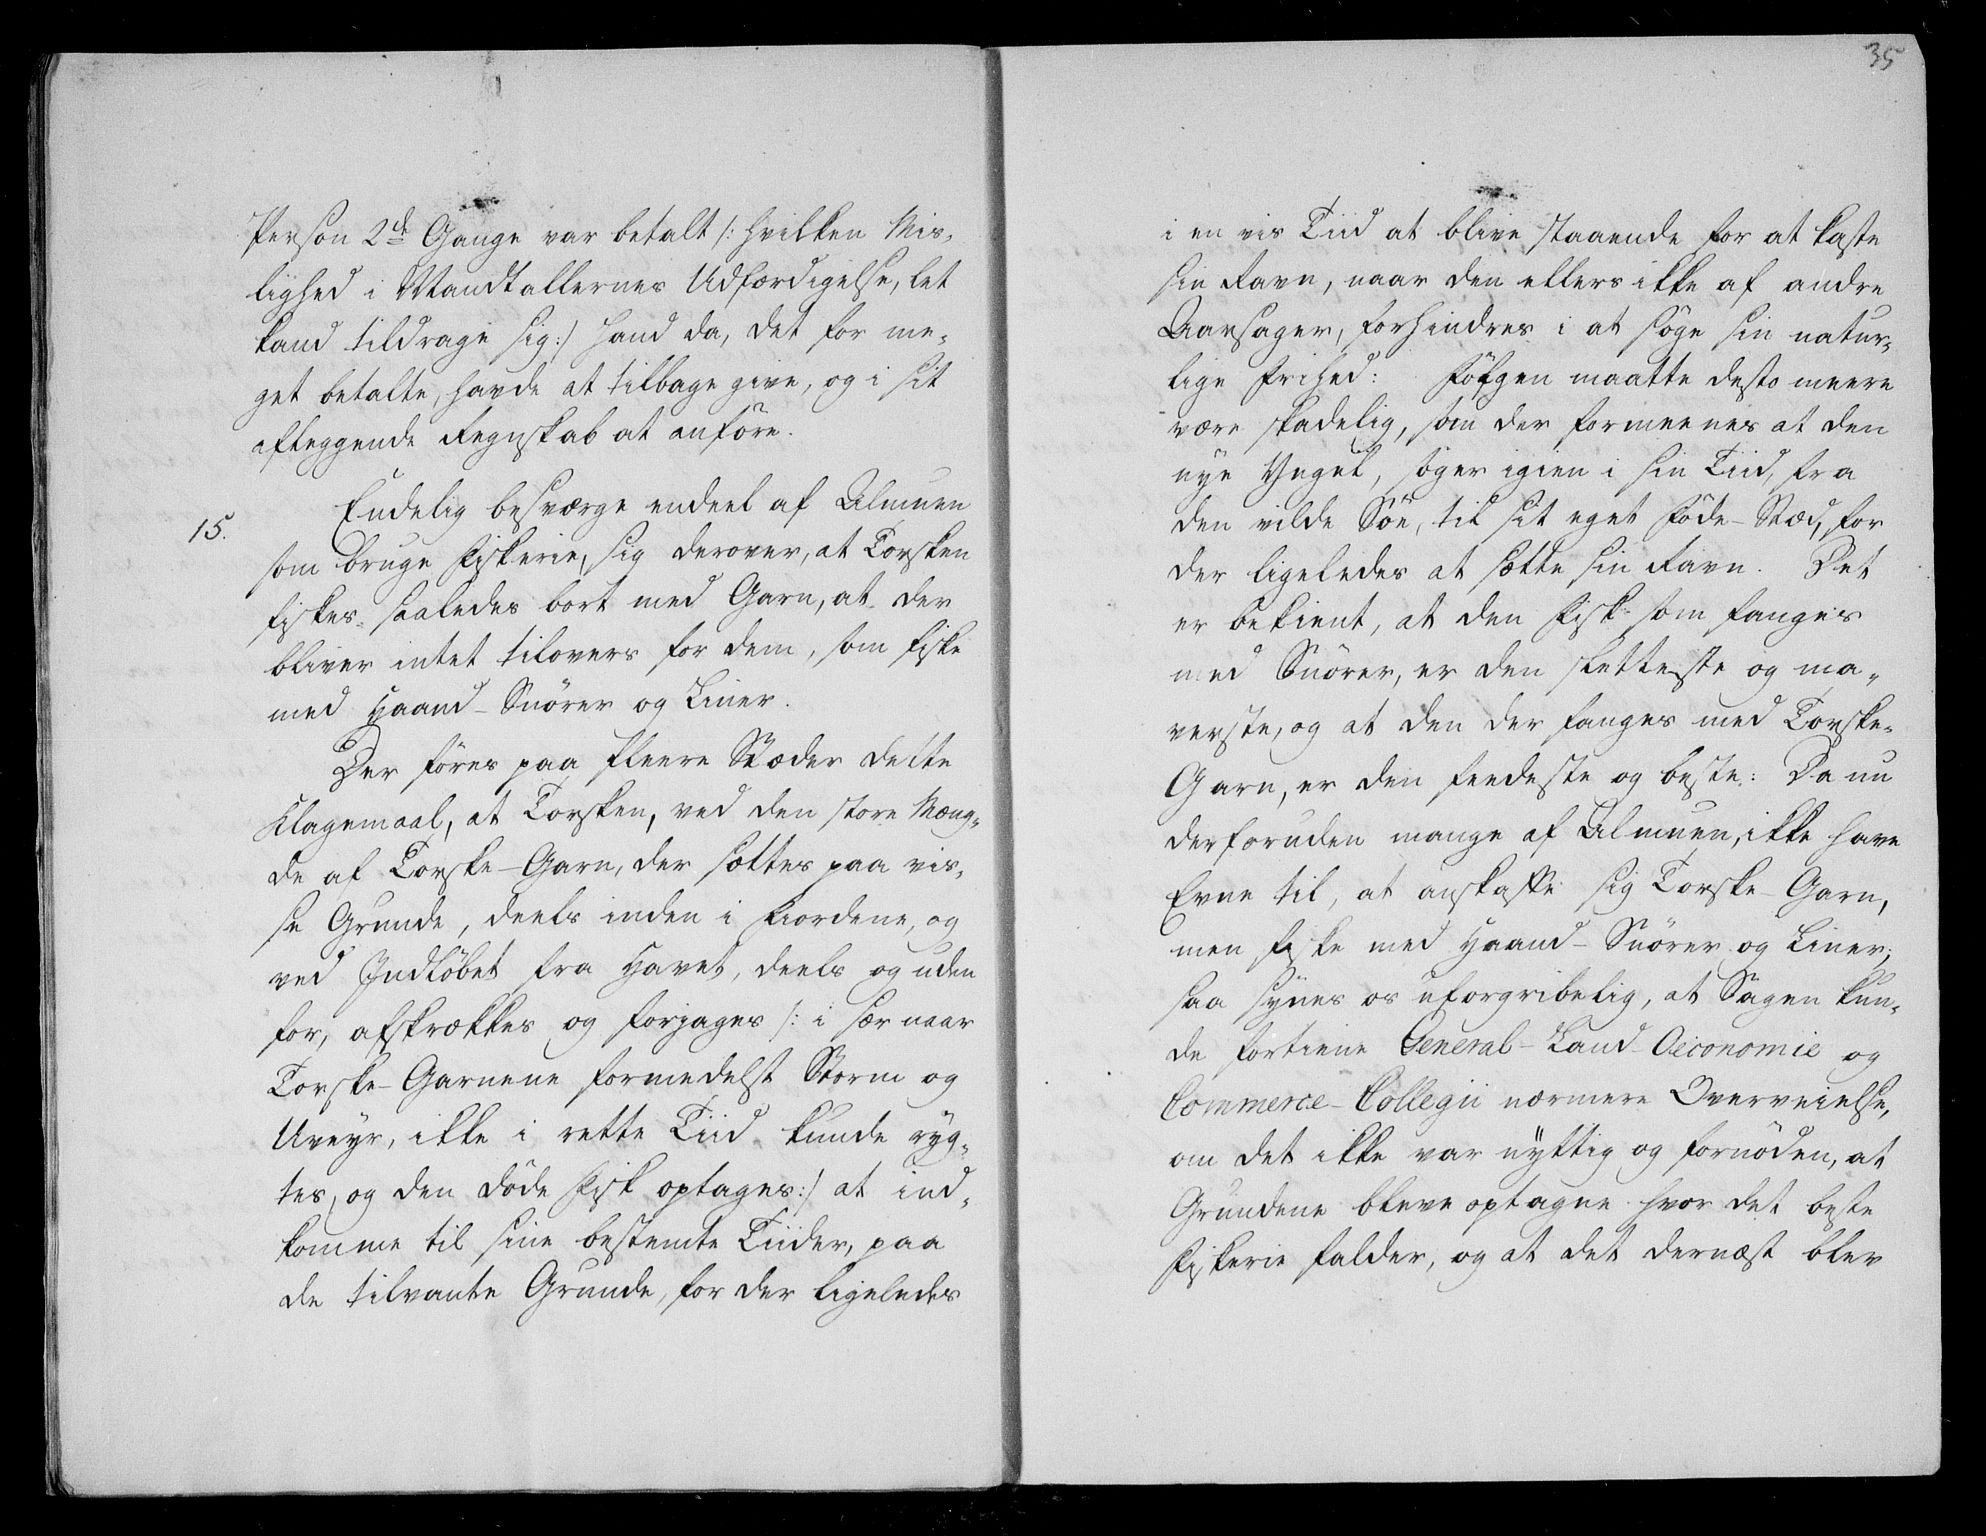 Person 2de Gange var betalt /: hvilken Mis-
lighed i Mandtallernes Udfærdigelse, let
kand tildrage sig :/ hand da, det for me-
get betalte, havde at tilbage give, og i sit
afleggende Regnskab at anföre.
15.
Endelig besværge endeel af Almuen
som bruge Fiskerie, sig derover, at Torsken
fiskes saaledes bort med Garn, at der
bliver intet tilovers for dem, som fiske
med Haand-Snörer og Liner.
Der föres paa fleere Stæder dette
Klagemaal, at Torsken, ved den store Mæng-
de af Torske-Garn, der sættes paa vis-
se Grunde, deels inden i Fiordene, og
ved Indlöbet fra Havet, deels og uden
for, afskrækkes og forjages /: i sær naar
Torske-Garnene formedelst Storm og
Uveyr, ikke i rette Tiid kunde ryg-
tes, og den döde Fisk optages :/ at ind-
komme til sine bestemte Tiider, paa
de tilvante Grunde, for der ligeledes
35
i en vis Tiid at blive staaende for at kaste
sin Ravn, naar den ellers ikke af andre
Aarsager, forhindres i at söge sin natur-
lige Frihed: Fölgen maatte desto meere
være skadelig, som der formeenes at den
nye Yngel, söger igien i sin Tiid, fra
den vilde Söe, til sit eget Föde-Stæd, for
der ligeledes at sætte sin Ravn. Det
er bekient, at den Fisk som fanges
med Snörer, er den sletteste og ma-
verste, og at den der fanges med Torske-
Garn, er den feedeste og beste: Da nu
derforuden mange af Almuen, ikke have
Evne til, at anskaffe sig Torske-Garn,
men fiske med Haand-Snörer og Liner;
saa synes os uforgribelig, at Sagen kun-
de fortiene General-Land-Oeconomie og
Commerce-Collegii nærmere Overveielse,
om det ikke var nyttig og fornöden, at
Grundene bleve optagne hvor det beste
Fiskerie falder, og at det dernæst blev